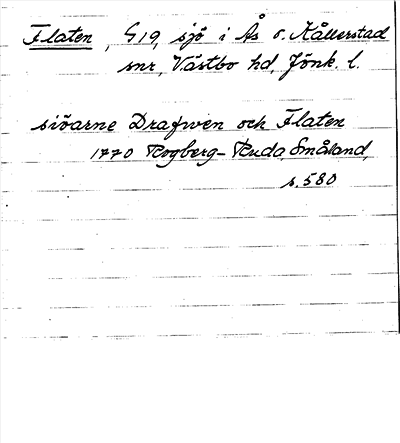 Flaten, G19, sjö i Ås o. Kållerstad
snr, Västbo hd, Jönk. l.
siöarne Drafwen och Flaten
1770 Rogberg-Ruda, Småland,
s. 580